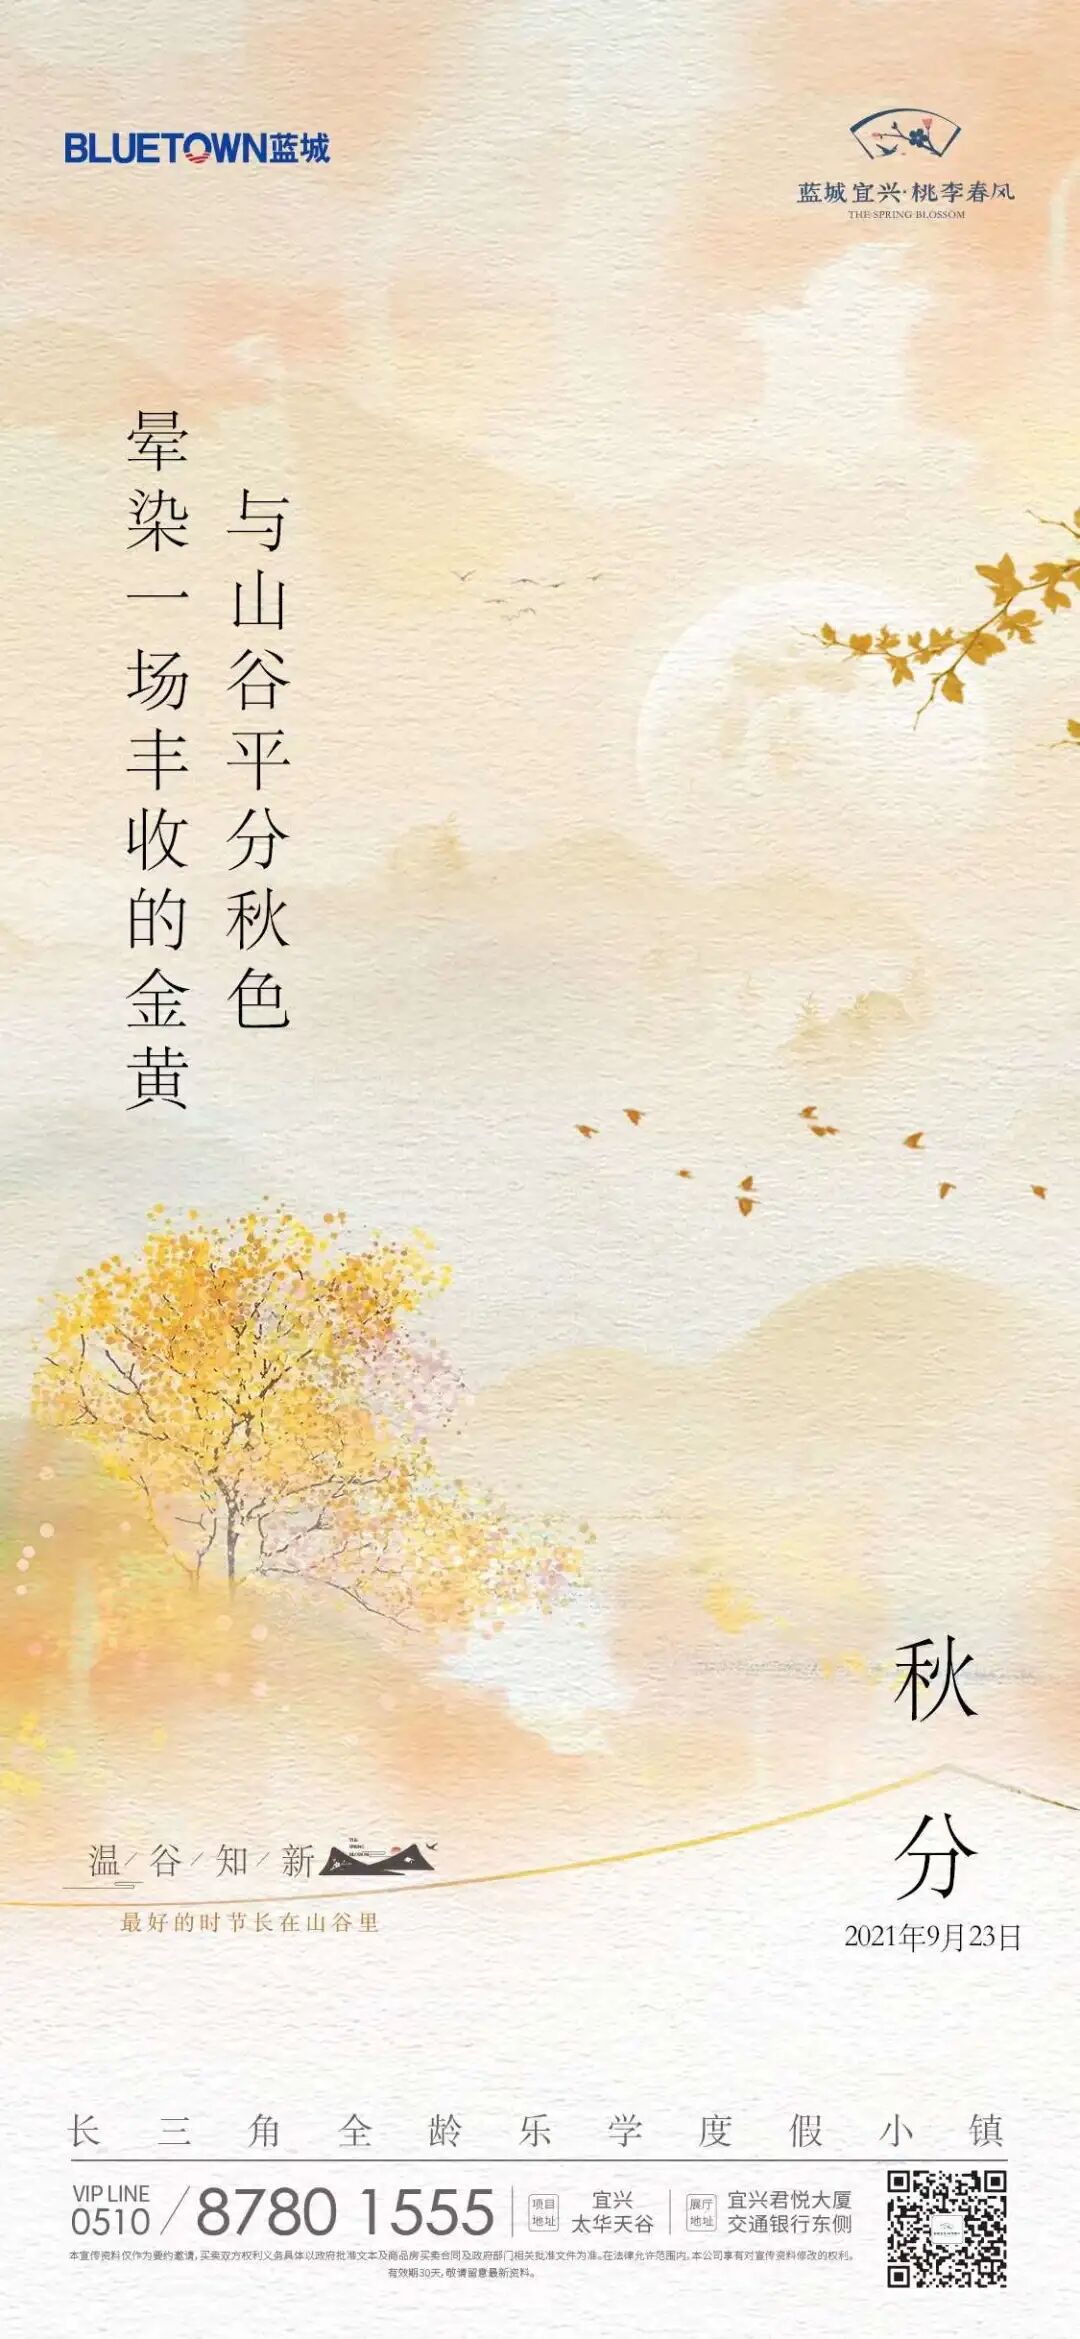 BLUETOWN蓝城
蓝城宜兴·桃李春风
THE SPRING BLOSSOM
与山谷平分秋色
晕染一场丰收的金黄
秋分
2021年9月23日
温/谷/知/新
THE
SPRING
BLOSSOM
最好的时节长在山谷里
长三角全龄乐学度假小镇
VIP LINE
0510/8780 1555
项目地址
宜兴
太华天谷
展厅地址
宜兴君悦大厦
交通银行东侧
本宣传资料仅作为要约邀请,买卖双方权利义务具体以政府批准文本及商品房买卖合同及政府部门相关批准文件为准。在法律允许范围内,本公司享有对宣传资料修改的权利。
有效期30天,敬请留意最新资料。